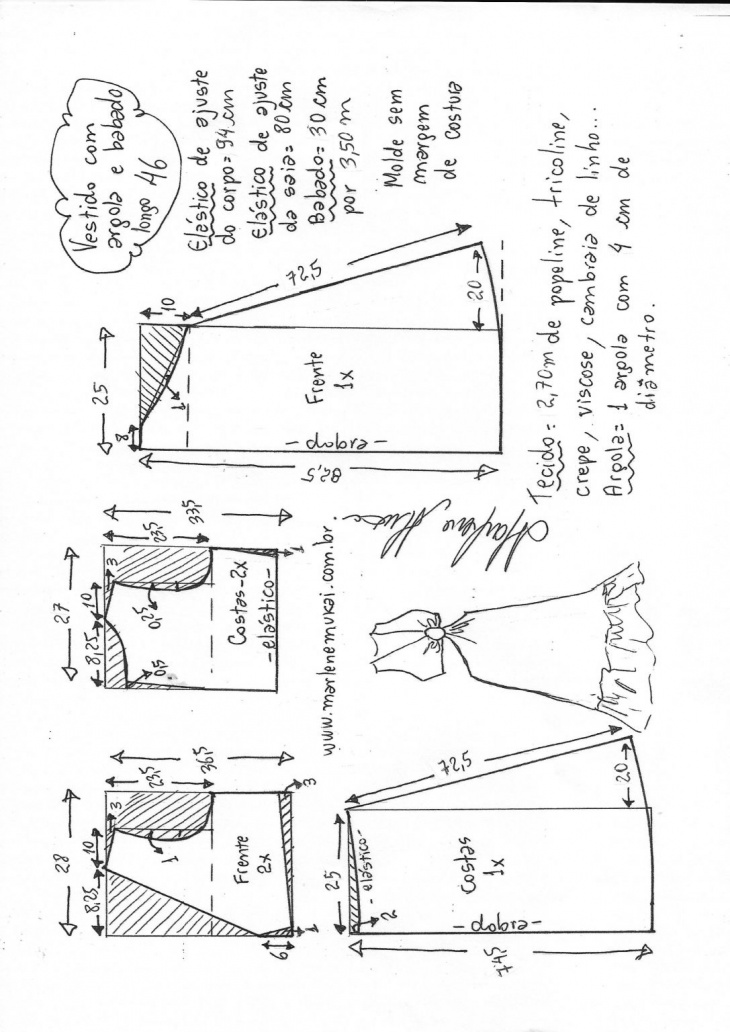 Vestido com
argola e babado
longo 46
Elástico de ajuste
do corpo = 94 cm
Elástico de ajuste
da saia = 80 cm
Babado = 30 cm
por 3,50 m
Molde sem
margem
de costura
Tecido = 2,70m de popeline, tricoline,
crepe, viscose, cambraia de linho...
Argola = 1 argola com 4 cm de
diâmetro.
25
8
10
1
72,5
20
Frente
1x
- dobra -
82,5
27
8,25
10
3
23,5
33,5
0,25
0,5
1
Costas - 2x
- elástico -
www.marlenemukai.com.br.
28
8,25
10
3
23,5
36,5
1
Frente
2x
3
6
1
25
- elástico -
2
72,5
20
Costas
1x
- dobra -
74,5